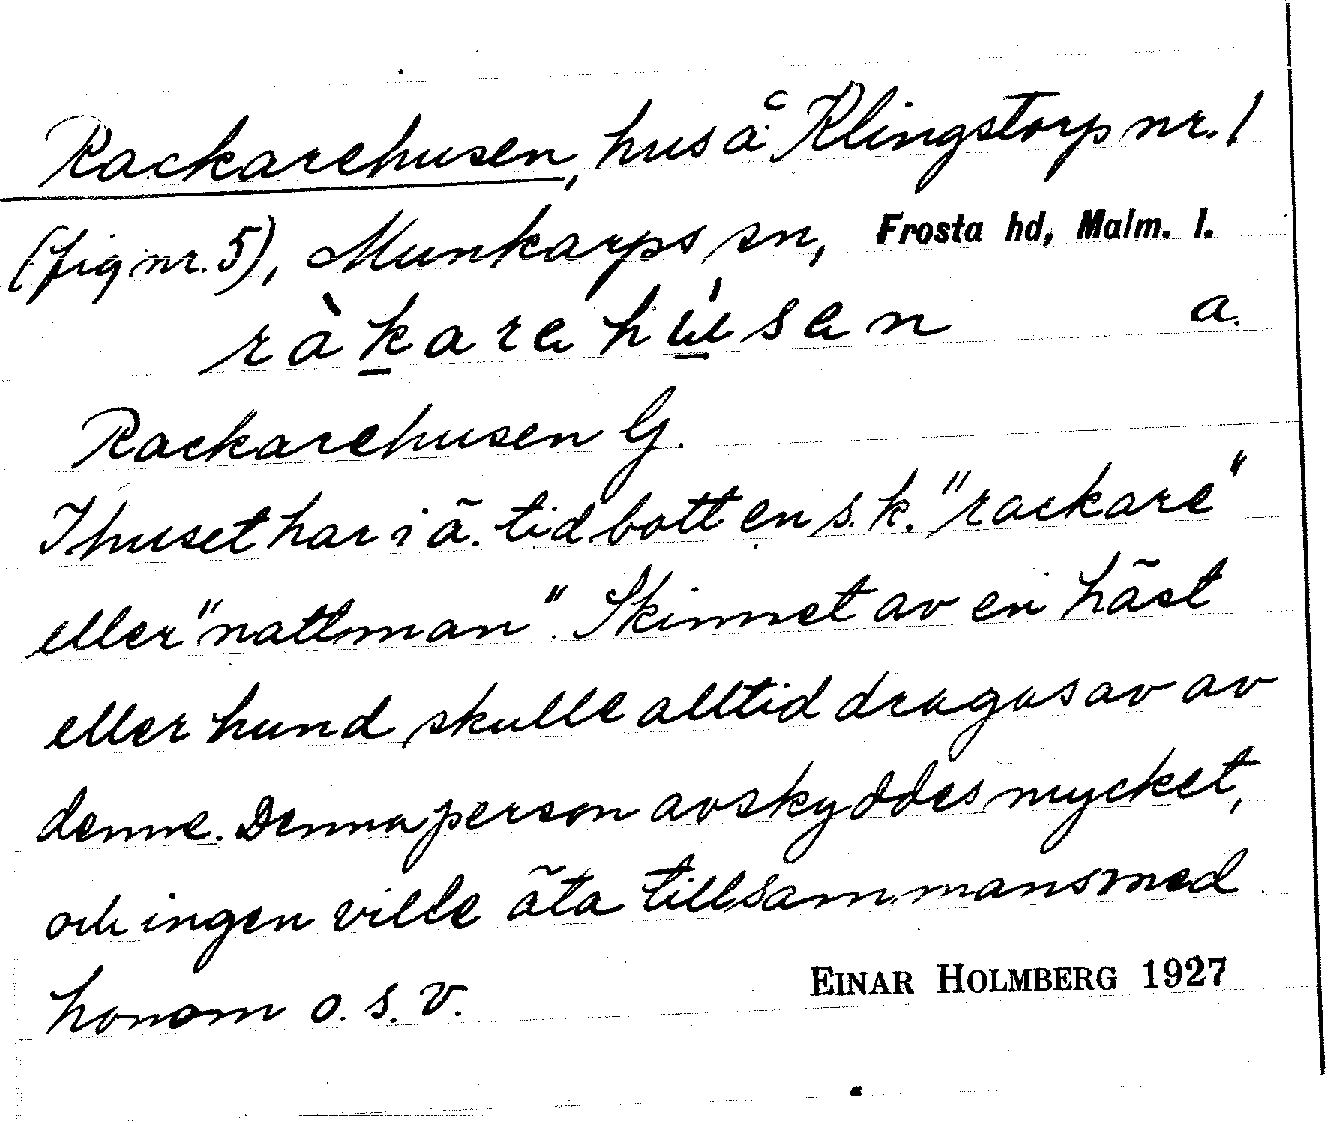 Rackarehusen, hus å Klingstorp nr. 1
(fig nr. 5), Munkarps sn, Frosta hd, Malm. l.
ràkarehúsen a.
Rackarehusen G.
I huset har i ä. tid bott en s.k. "rackare"
eller "nattman". Skinnet av en häst
eller hund skulle alltid dragas av av
denne. Denna person avskyddes mycket,
och ingen ville äta tillsammans med
honom o. s. v.
EINAR HOLMBERG 1927